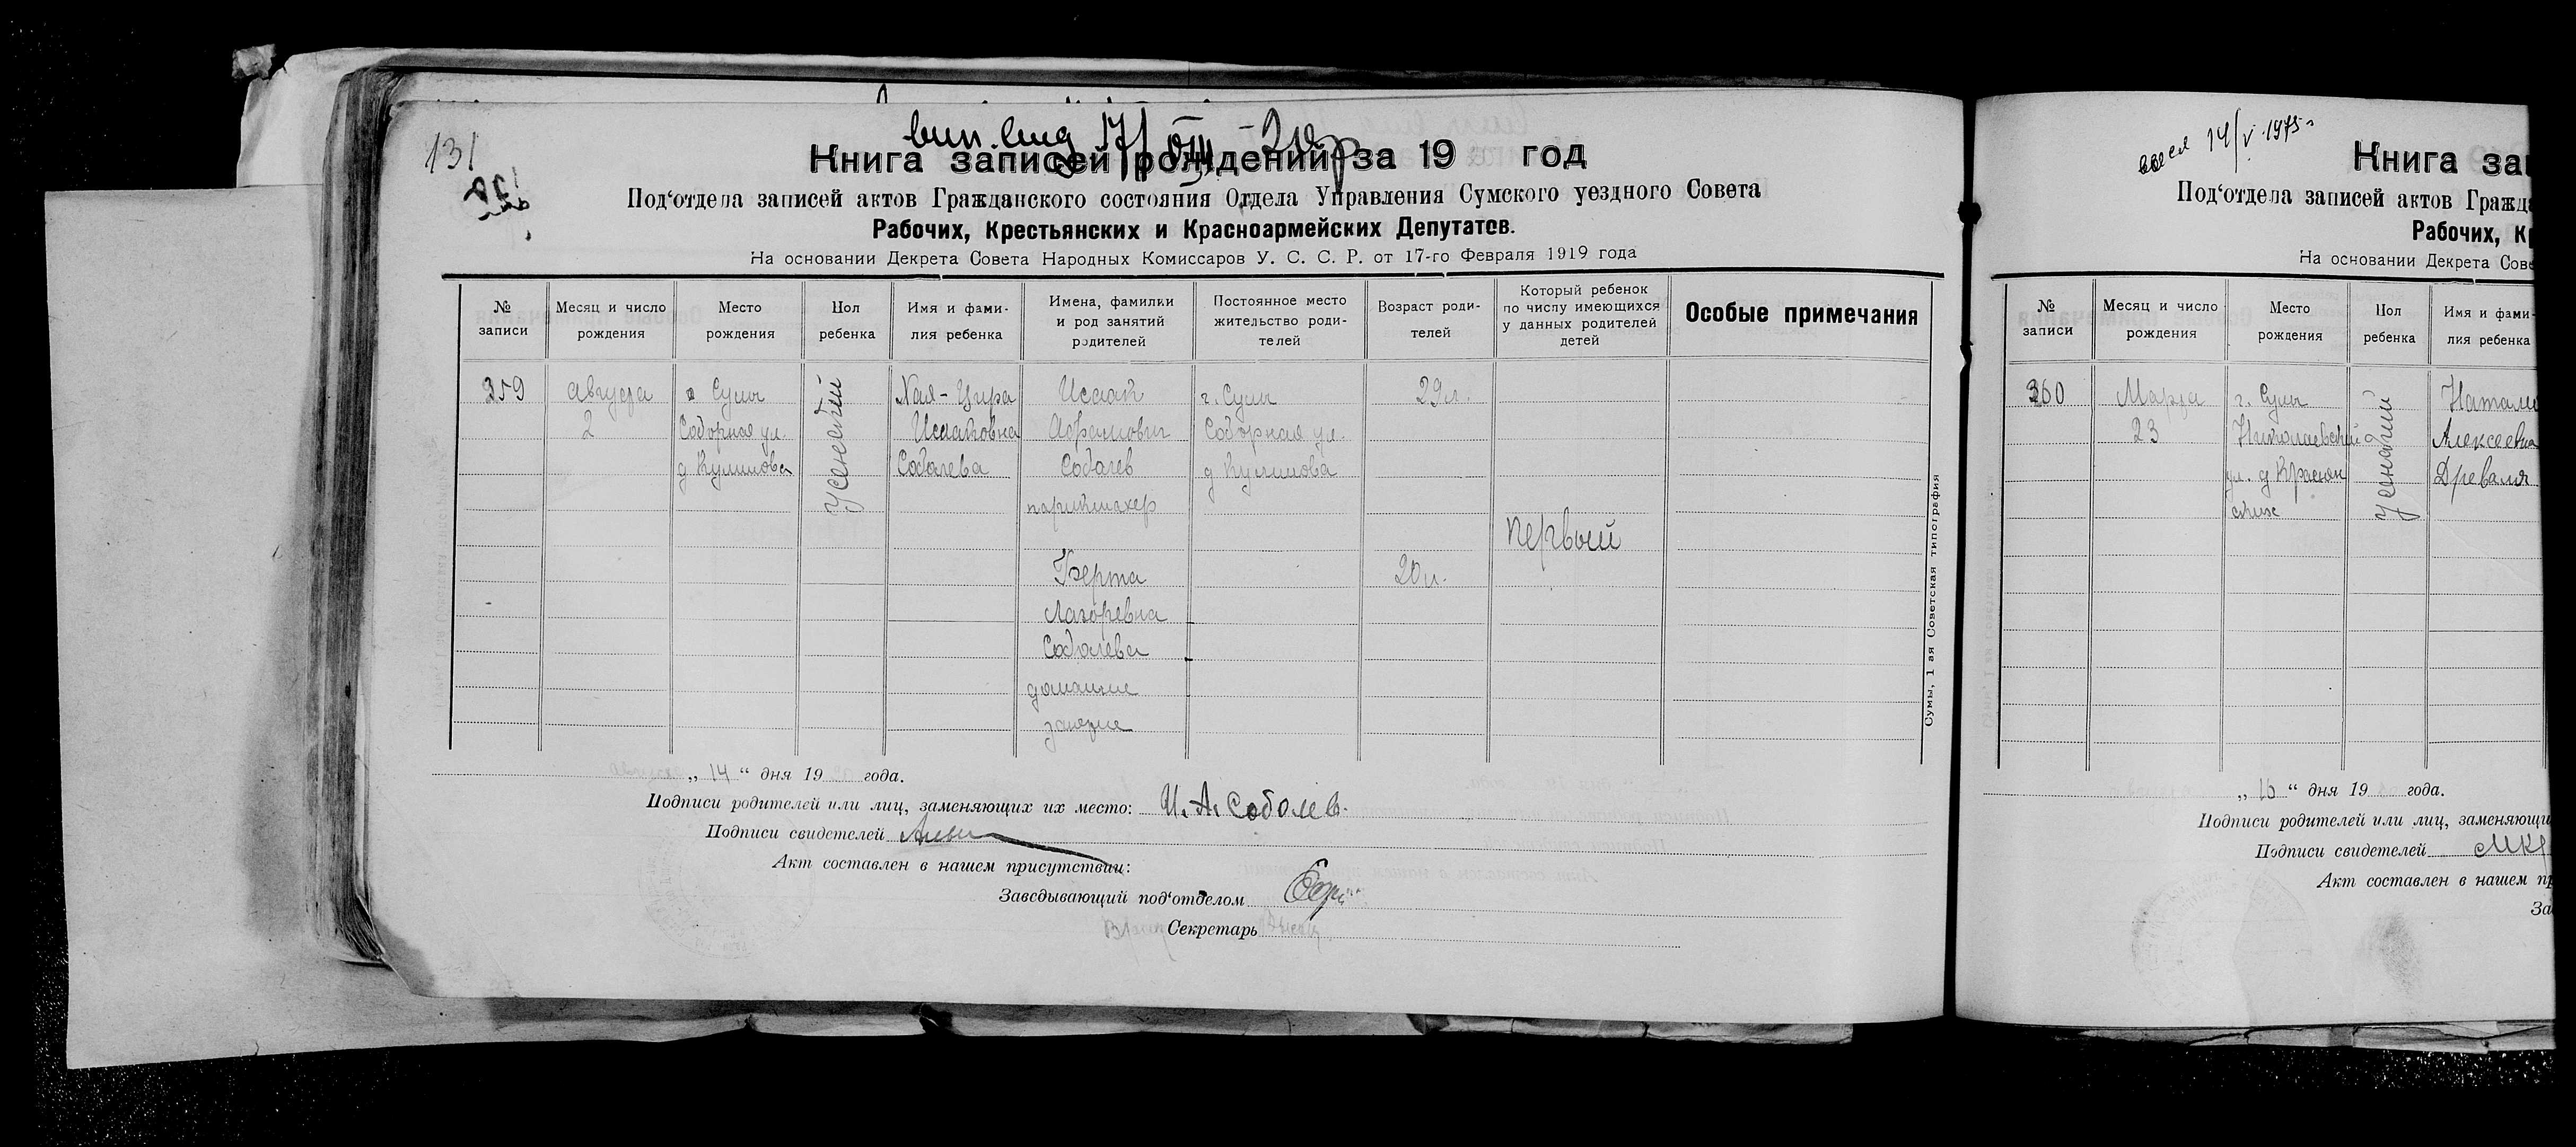 131
Книга записей рождений за 19 год
Под‘отдела записей актов Гражданского состояния Отдела Управления Сумского уездного Совета
Рабочих, Крестьянских и Красноармейских Депутатов.
На основании Декрета Совета Народных Комиссаров У. С. С. Р. от 17-го Февраля 1919 года
№ записи
Месяц и число рождения
Место рождения
Пол ребенка
Имя и фами-
лия ребенка
Имена, фамилии
и род занятий
родителей
Постоянное место
жительство роди-
телей
Возраст роди-
телей
Который ребенок
по числу имеющихся
у данных родителей
детей
Особые примечания
359
Августа
2
Сумы
Соборная ул.
д Кулишова
Женский
Хая-Цира
Исааковна
Соболева
Исаак
Абрамович
Соболев
парикмахер
Берта
Лазоревна
Соболева
домашние
занятие
г. Сумы
Соборная ул.
д Кулишова
29 л.
20 л.
первый
Сумы, 1 ая Советская типография
„ 14 “ дня 19 года.
Подписи родителей или лиц, заменяющих их место: И. А. Соболев.
Подписи свидетелей
Акт составлен в нашем присутствии:
Заведывающий под‘отделом
Секретарь
14/V 1975
Книга за
Под‘отдела записей актов Гражда
Рабочих, К
На основании Декрета Сове
№ записи
Месяц и число рождения
Место рождения
Пол ребенка
Имя и фами-
лия ребенка
360
Марта
23
г. Сумы
Николаевский
ул. д Краснян
ских
Женский
Натали
Алексеевна
Древаль
„ 16 “ дня 19 года.
Подписи родителей или лиц, заменяющи
Подписи свидетелей
Акт составлен в нашем пр
За